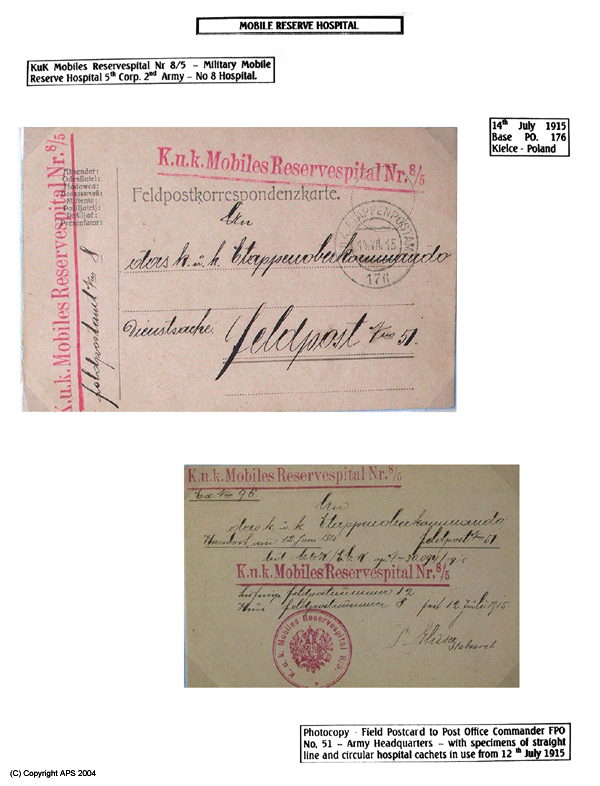 MOBILE RESERVE HOSPITAL
KuK Mobiles Reservespital Nr 8/5 – Military Mobile
Reserve Hospital 5th Corp. 2nd Army – No 8 Hospital.
14th July 1915
Base PO. 176
Kielce - Poland
K.u.k. Mobiles Reservespital Nr. 8/5
K.u.k. Mobiles Reservespital Nr. 8/5
Absender:
Odesílatel:
Feldpostkorrespondenzkarte.
K.u.K. ETAPPENPOSTAMT
14.VII.15
176
An
das k. u. k. Etappenoberkommando
Dienstsache.
Feldpost No 51.
Feldpostamt No 8
K.u.k. Mobiles Reservespital Nr. 8/5
Ex. No 96.
An
das k. u. k. Etappenoberkommando
Feldpost No 51
K.u.k. Mobiles Reservespital Nr. 8/5
Feldpostnummer 12
Feldpostnummer 8 seit 12. Juli 1915.
K. u. k. Mobiles Reservespital 8/5.
Photocopy - Field Postcard to Post Office Commander FPO
No, 51 – Army Headquarters – with specimens of straight
line and circular hospital cachets in use from 12 th July 1915
(C) Copyright APS 2004